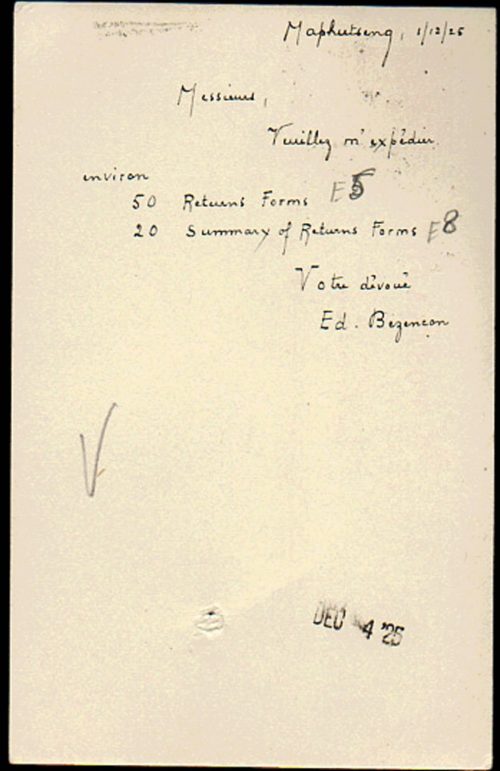 Maphutseng, 1/12/25
Messieurs,
Veuillez m'expédier
environ
50 Returns Forms E5
20 Summary of Returns Forms E8
Votre dévoué
Ed. Bezencon
V
DEC 4 '25